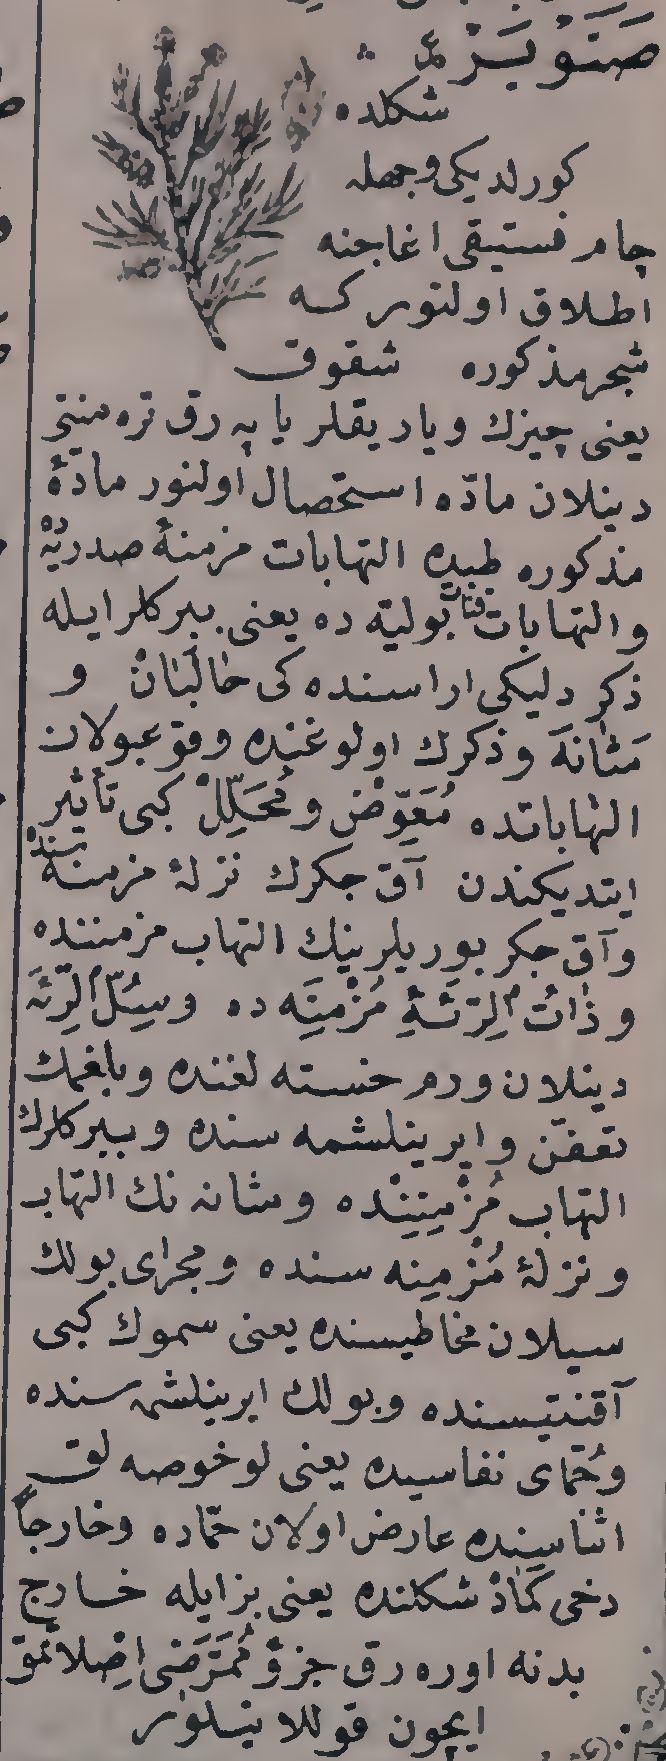 صَنَوْبَرْ
شكلده
كورلديكى وجهله
چام فستيقى اغاجنه
اطلاق اولنور كه
شجر مذكوره شقوق
يعنى چيزك وياريقلر ياپه رق تره منتى
دينلان مادّه استحصال اولنور مادّۀ
مذكوره طبده التهابات مزمنۀ صدريّه ده
والتهابات قنات بوليّه ده يعنى ببركلر ايله
ذكر دليكى اراسنده كى حالبان و
مَثانَه وذكرك اولوغنده وقوعبولان
التهاباتده مُعَوِّضْ ومُحَلِّلْ كبى تأثير
ايتديكندن آق جكرك نزلۀ مزمنه سنده
وآق جكر بوريلرينك التهاب مزمننده
وذاتُ الرِّئَۀِ مُزْمِنَه ده وسِلُّ الرِّئَه
دينلان ورم خسته لغنده وبلغمك
تعفّن وايرينلشمه سنده وببركلرك
التهاب مُزْمِنِنْده ومثانه نك التهاب
ونزلۀ مُزْمِنه سنده ومجراى بولك
سيلان مخاطيسنده يعنى سموك كبى
آقنتيسنده وبولك ايرينلشمه سنده
وحُمّاى نفاسيده يعنى لوخوصه لق
اثناسنده عارض اولان حمّاده وخارجاً
دخى كَمادْ شكلنده يعنى بز ايله خارج
بدنه اوره رق جزؤ مُمَرَّضى اصلاتمق
ايچون قوللانيلور